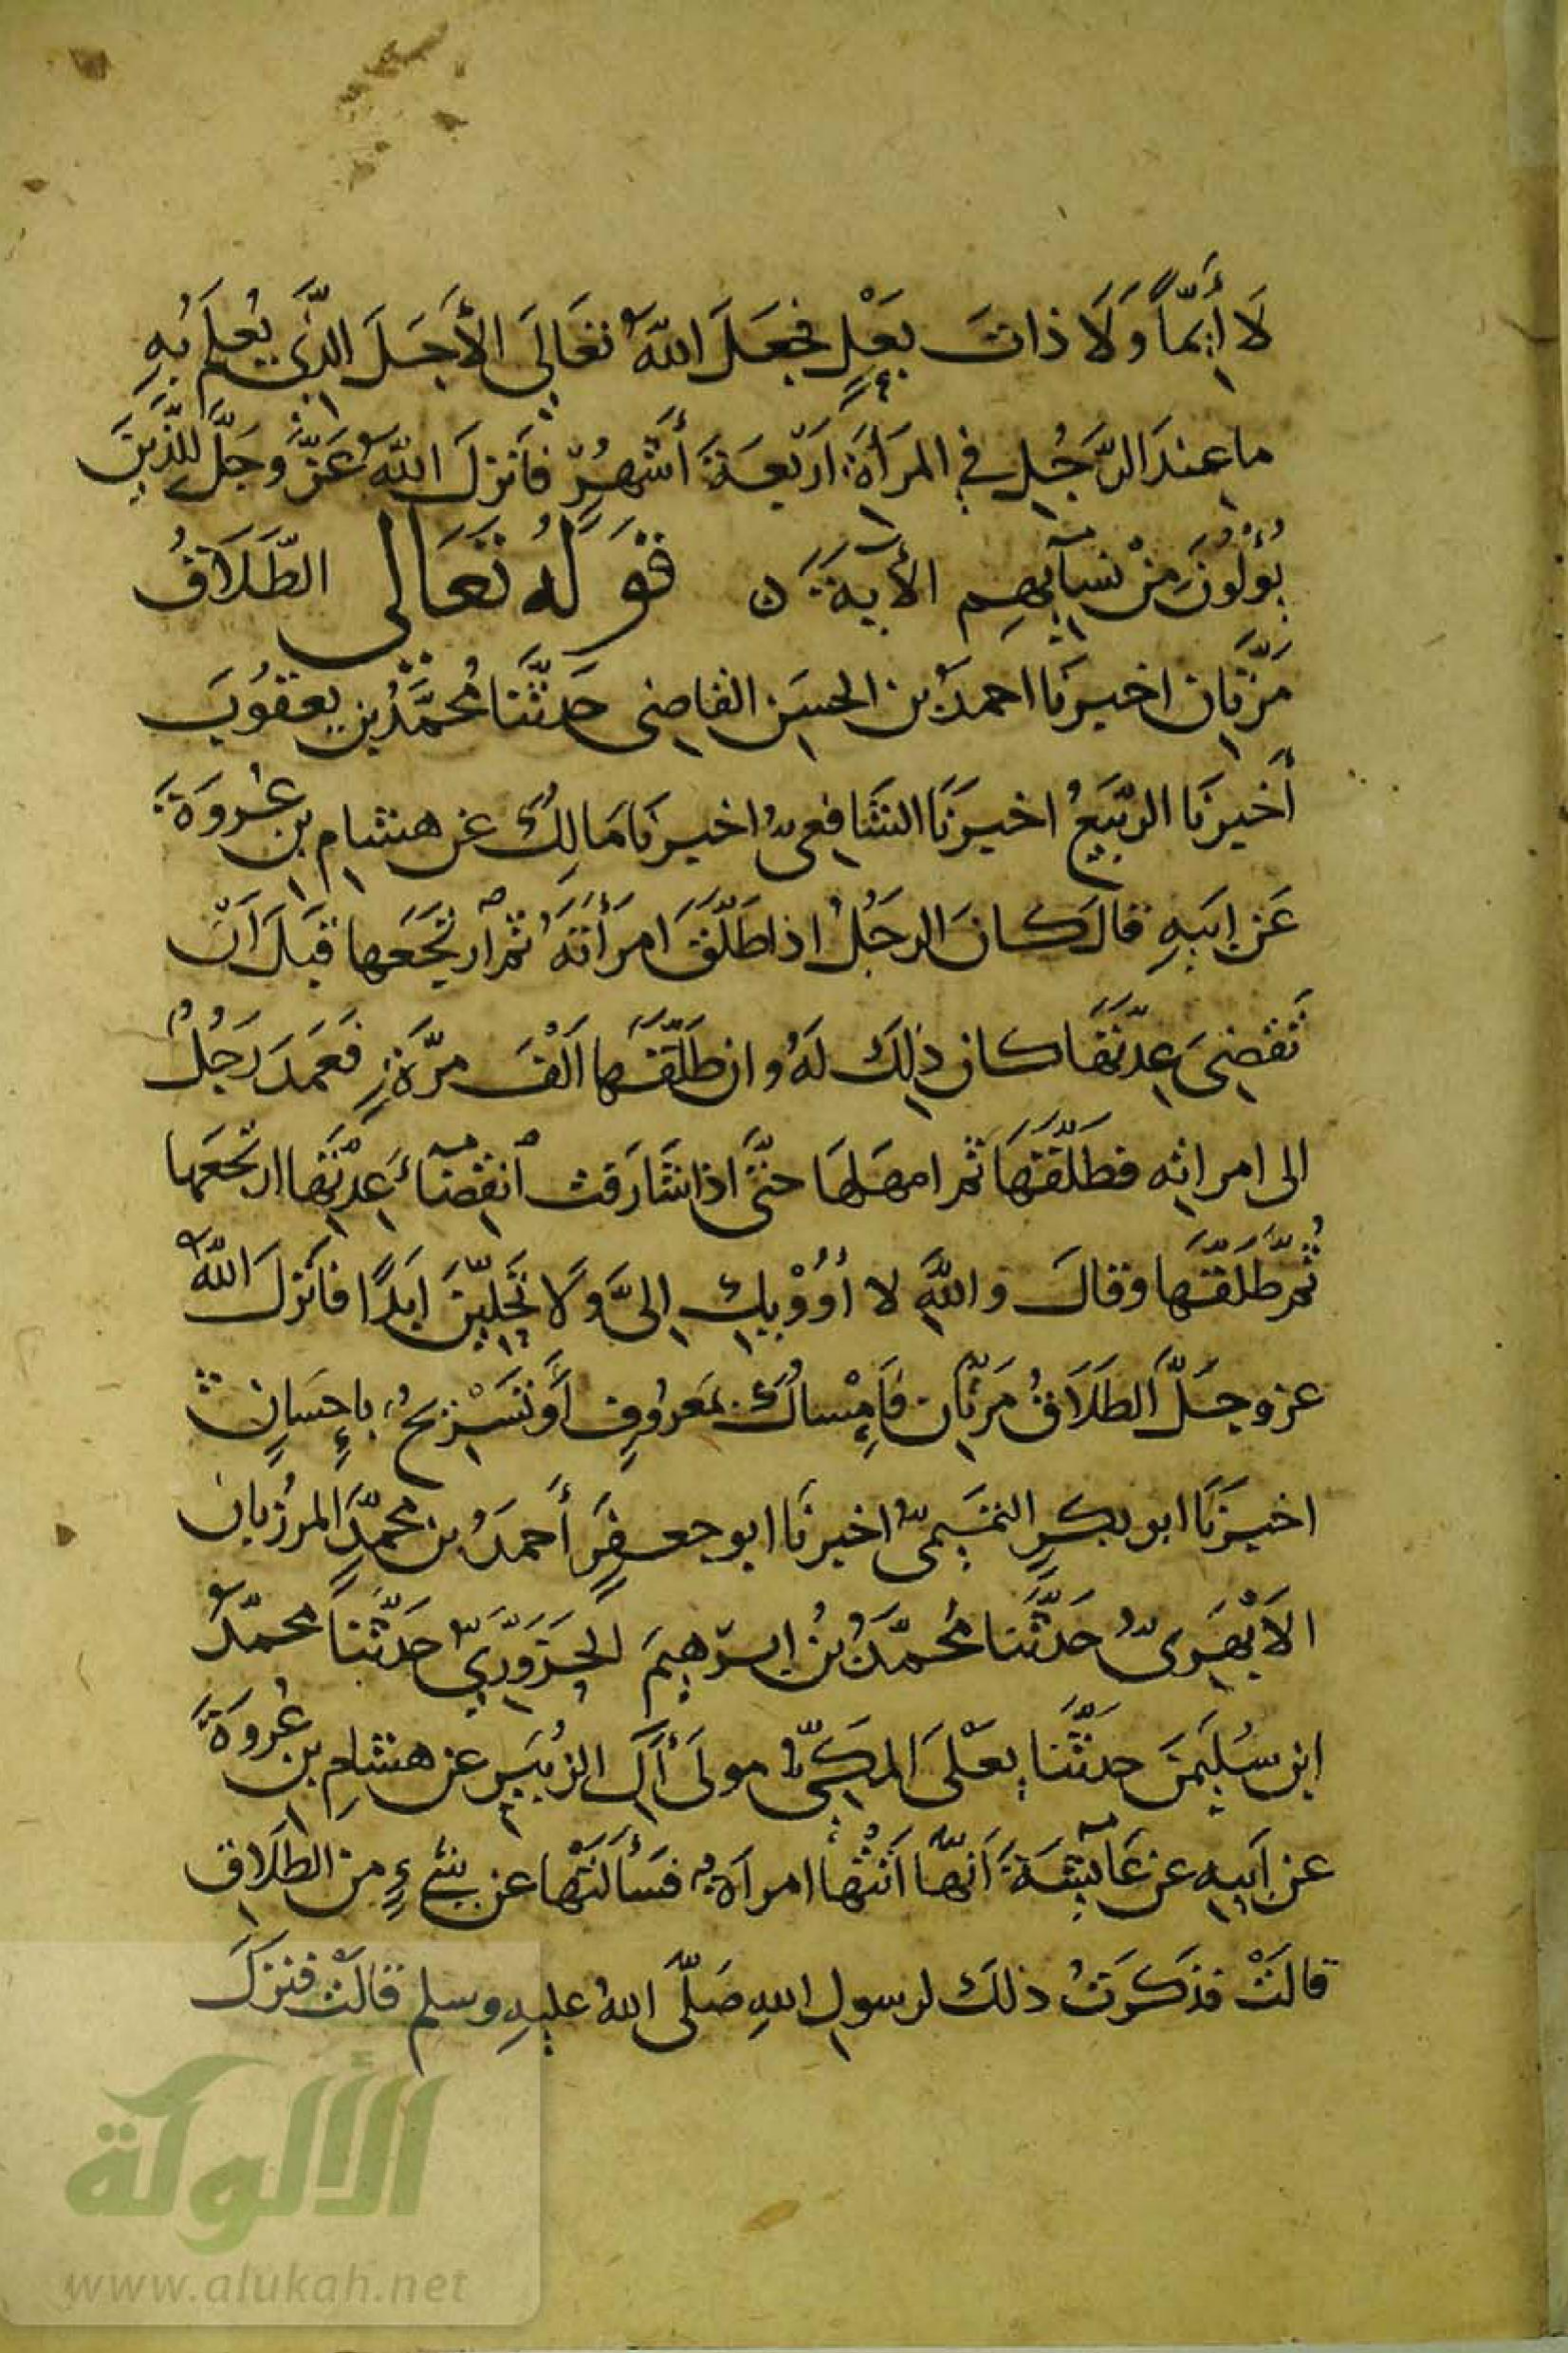 لَا أَيِّمًا وَلَا ذاتَ بَعْلٍ فجَعَلَ اللهُ تعَالَى الأَجَلَ الَّذِي يُعلَمُ بهِ
ما عندَ الرَّجُلِ في المَرأَةِ اَربَعةَ أَشهُرٍ فاَنزلَ اللهُ عَزَّ وجَلَّ للَّذِينَ
يُؤْلُونَ مِنْ نِسآئِهِم الأيَةَ ه قَوْلُهُ تَعَالى الطَّلَاقُ
مَرَّتَانِ اخبرَنا احمدُ بن الحسَن القاضِى حَدثَّنا مُحمَّدُ بن يعقوُبَ
أَخبرَنا الربَّيعُ اخبرَنَا الشَّافِعىُّ اخبرنَا مَالِكٌ عَن هشام بن عُروَةَ
عَن ابيَهِ قالَ كانَ الرجُلُ اذا طَلَّقَ امرَأَتَهُ ثم ارتجَعَها قبَلَ اَنْ
تَنقضِىَ عِدّتهَا كان ذلِكَ لَهُ وان طَلَّقَها اَلْفَ مرَّةٍ فَعمَدَ رَجُلٌ
الى امراتِه فطَلَّقَهَا ثم امهَلهَا حتَّى اذا شَارَفت اَنقِضآءَ عِدَّتِها ارتجَعَها
ثُمَّ طَلَّقَها وقالَ واللهِ لا أُؤْوِيكِ اِلىَّ وَلَا تحِلِيّنَ ابَدًا فاَنزَلَ اللهُ
عز وجَلَّ الطَلَاقُ مَرتَّانِ فَاِمْساكٌ بمَعرُوفٍ اَوَ تَسْرِيحٌ بإحسَانٍ
اخبرَنَا ابو بكرٍ التمَيمىُّ اخبرنَا ابو جعفرٍ أَحمدُ بن محمّدٍ المرزُبان
الاَبْهَرىُّ حَدثَّنا مُحمَّدُ بنُ ابرَهيمَ الحَزَوَّرِيّ حَدثَّنا محمّدُ
ابن سُلَيمَنَ حدثَّنا يعْلَى المكىُّ مولَى آلِ الزبُيَرِ عن هشامِ بن عُروةَ
عن اَبيهِ عن عَائِشةَ اَنهَّا اَتَتْها امراَةٌ فسَألَتْها عن شيءٍ مِنَ الطلَاقِ
قالَتْ فذَكرَتُ ذلكَ لرسولِ اللهِ صَلَّى اللهُ عليهِ وسلم قالَتْ فنزلَ
الألوكة
www.alukah.net